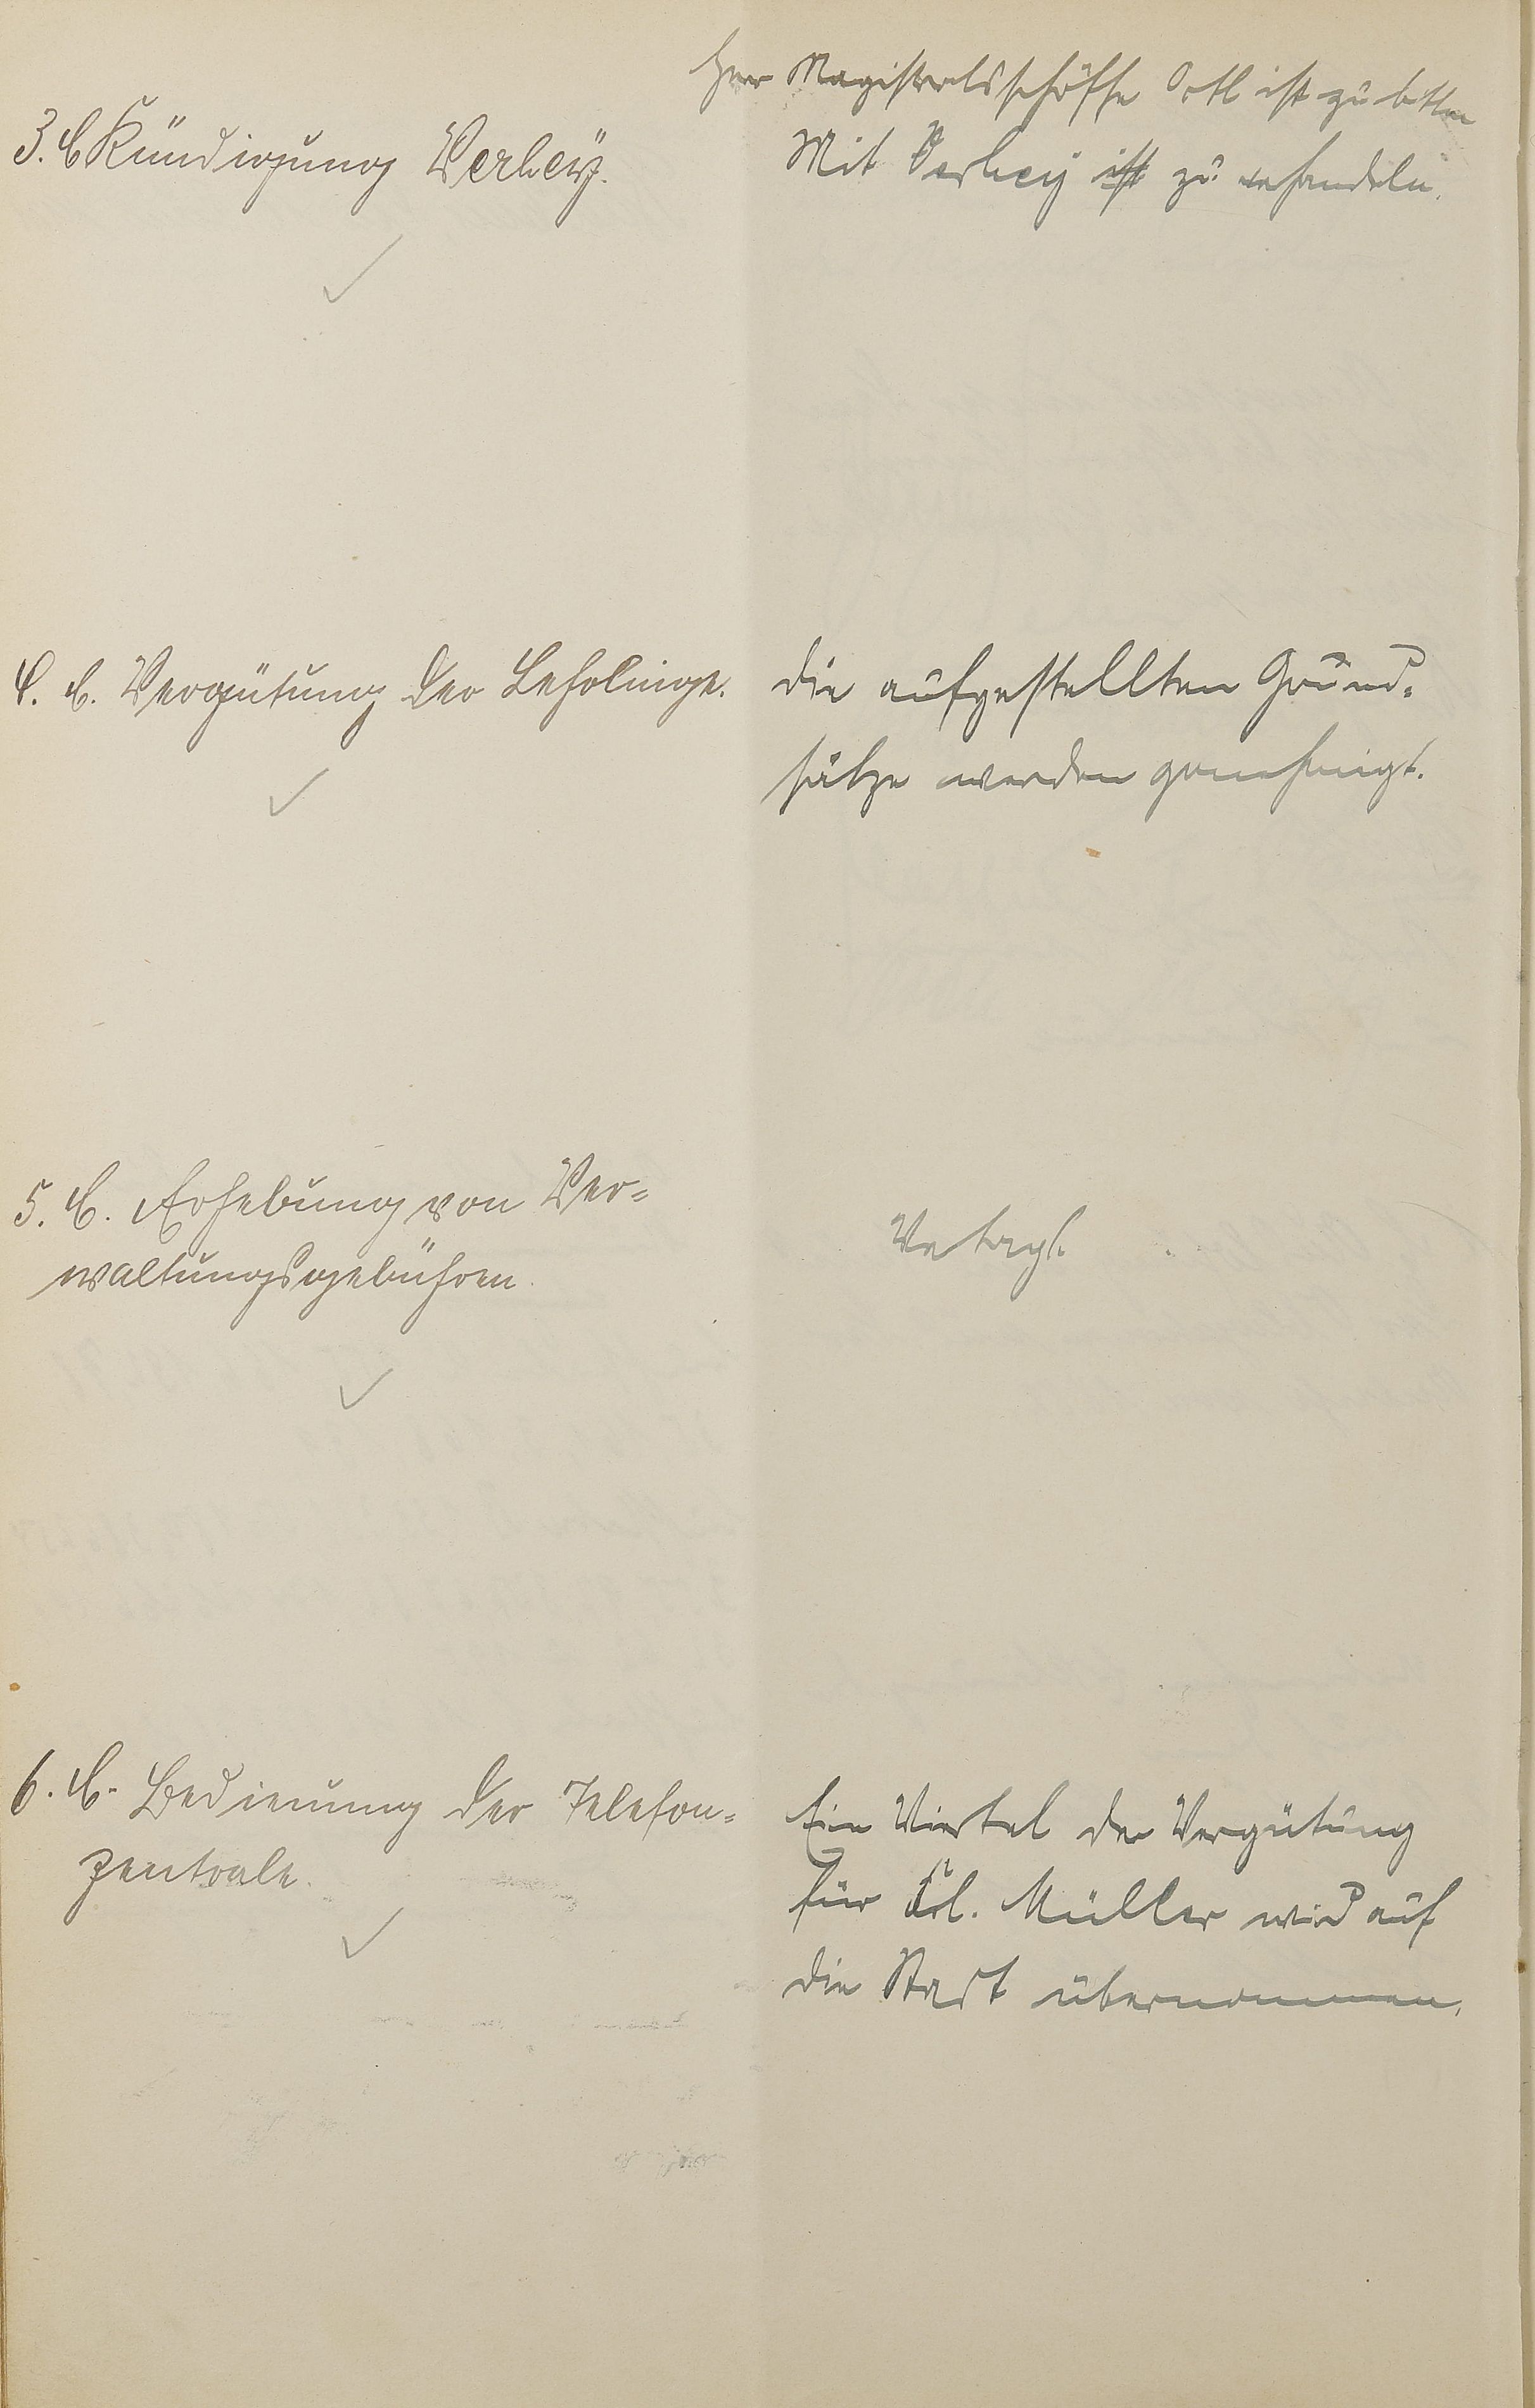 Herr Magistratsschöffe Ortl ist zu bitten
3. b. Kündigung Verheÿ.
Mit Verheÿ ist zu verhandeln.
4. b. Vergütung der Lehrlinge.
die aufgestellten Grund-
sätze werden genehmigt.
5. b. Erhebung von Ver-
waltungsgebühren.
Vertagt.
6. b. Bedienung der Telefon-
zentrale.
Ein Viertel der Vergütung
für Frl. Müller wird auf
die Stadt übernommen.